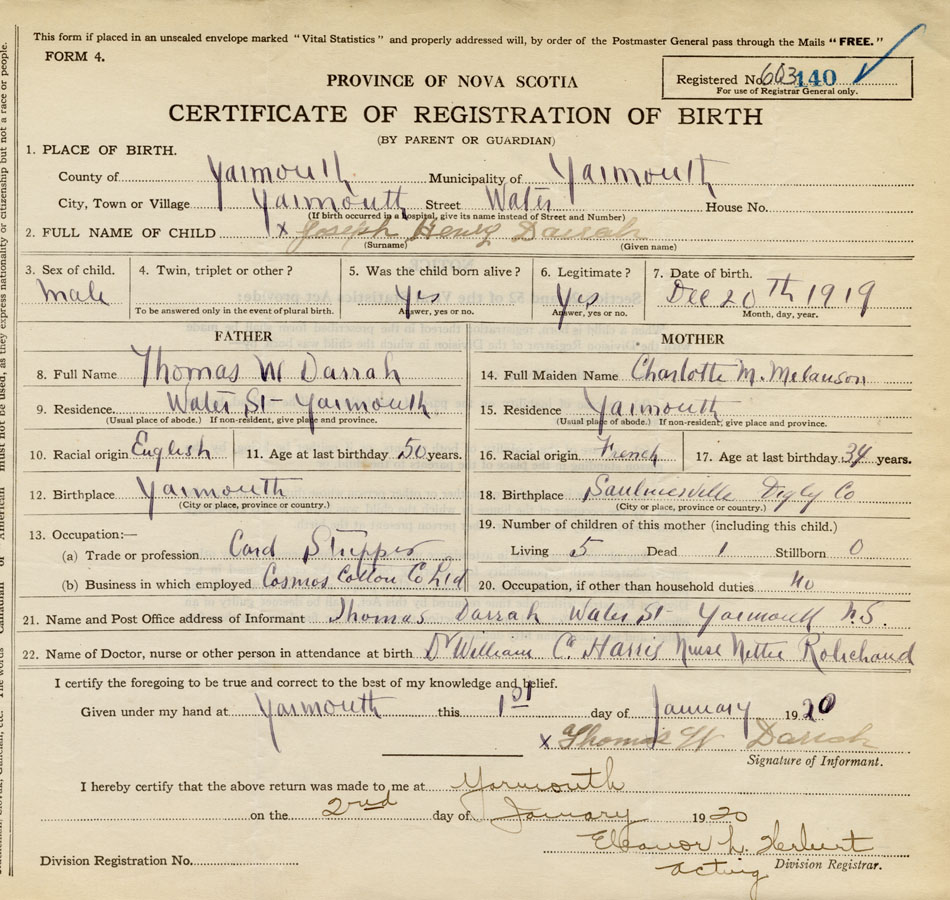 This form if placed in an unsealed envelope marked "Vital Statistics" and properly addressed will, by order of the Postmaster General pass through the Mails "FREE."
FORM 4.
Registered No. 603 140
For use of Registrar General only.
PROVINCE OF NOVA SCOTIA
CERTIFICATE OF REGISTRATION OF BIRTH
(BY PARENT OR GUARDIAN)
1. PLACE OF BIRTH.
County of Yarmouth Municipality of Yarmouth
City, Town or Village Yarmouth Street Water House No.
(If birth occurred in a hospital, give its name instead of Street and Number)
2. FULL NAME OF CHILD x Joseph Henry Darrah
(Surname) (Given name)
3. Sex of child. 4. Twin, triplet or other? 5. Was the child born alive? 6. Legitimate? 7. Date of birth.
Male Yes Yes Dec 20th 1919
To be answered only in the event of plural birth. Answer, yes or no. Answer, yes or no. Month, day, year.
FATHER MOTHER
8. Full Name Thomas W Darrah 14. Full Maiden Name Charlotte M. Melanson
9. Residence. Water St - Yarmouth 15. Residence Yarmouth
(Usual place of abode.) If non-resident, give place and province. (Usual place of abode.) If non-resident, give place and province.
10. Racial origin English 11. Age at last birthday 50 years. 16. Racial origin French 17. Age at last birthday 34 years.
12. Birthplace Yarmouth 18. Birthplace Saulnierville Digby Co
(City or place, province or country.) (City or place, province or country.)
13. Occupation:— 19. Number of children of this mother (including this child.)
(a) Trade or profession Card Stripper Living 5 Dead 1 Stillborn 0
(b) Business in which employed Cosmos Cotton Co Ltd 20. Occupation, if other than household duties no
21. Name and Post Office address of Informant Thomas Darrah Water St Yarmouth N.S.
22. Name of Doctor, nurse or other person in attendance at birth Dr William C. Harris Nurse Nettie Robichaud
I certify the foregoing to be true and correct to the best of my knowledge and belief.
Given under my hand at Yarmouth this 1st day of January 1920
x Thomas W Darrah
Signature of Informant.
I hereby certify that the above return was made to me at Yarmouth
on the 2nd day of January 1920
Eleanor L. Herbert
Division Registration No. acting Division Registrar.